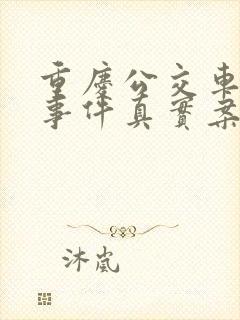 重庆公交車
事件真實案
沐嵐